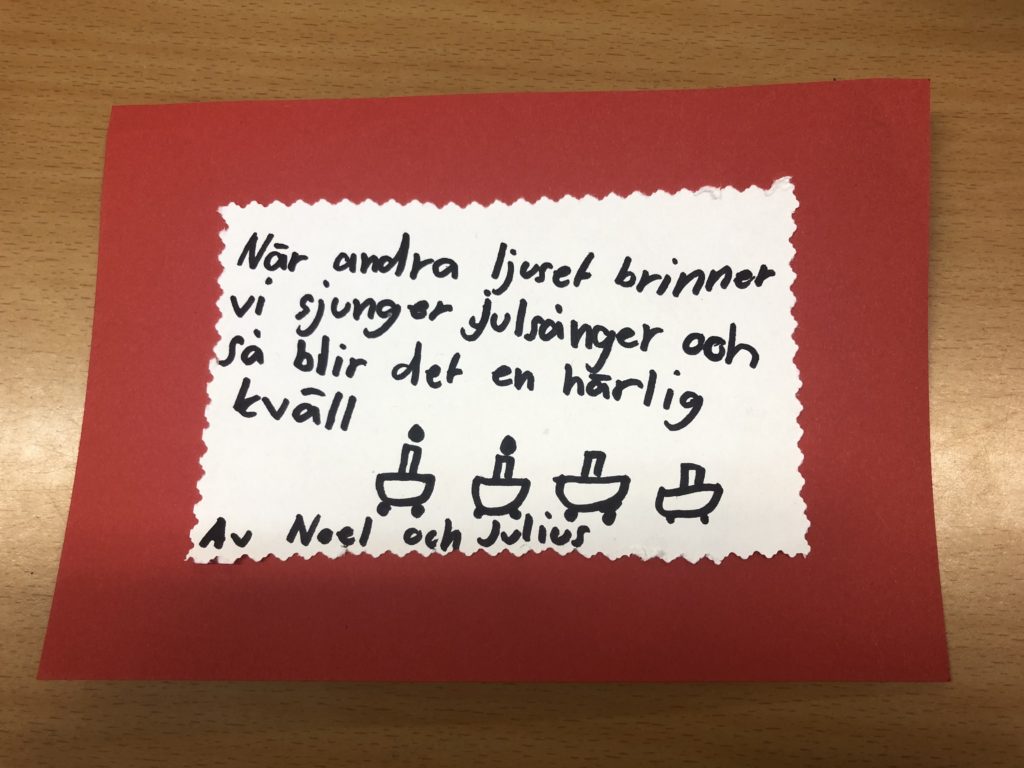 När andra ljuset brinner
vi sjunger julsånger och
så blir det en härlig
kväll
Av Noel och Julius